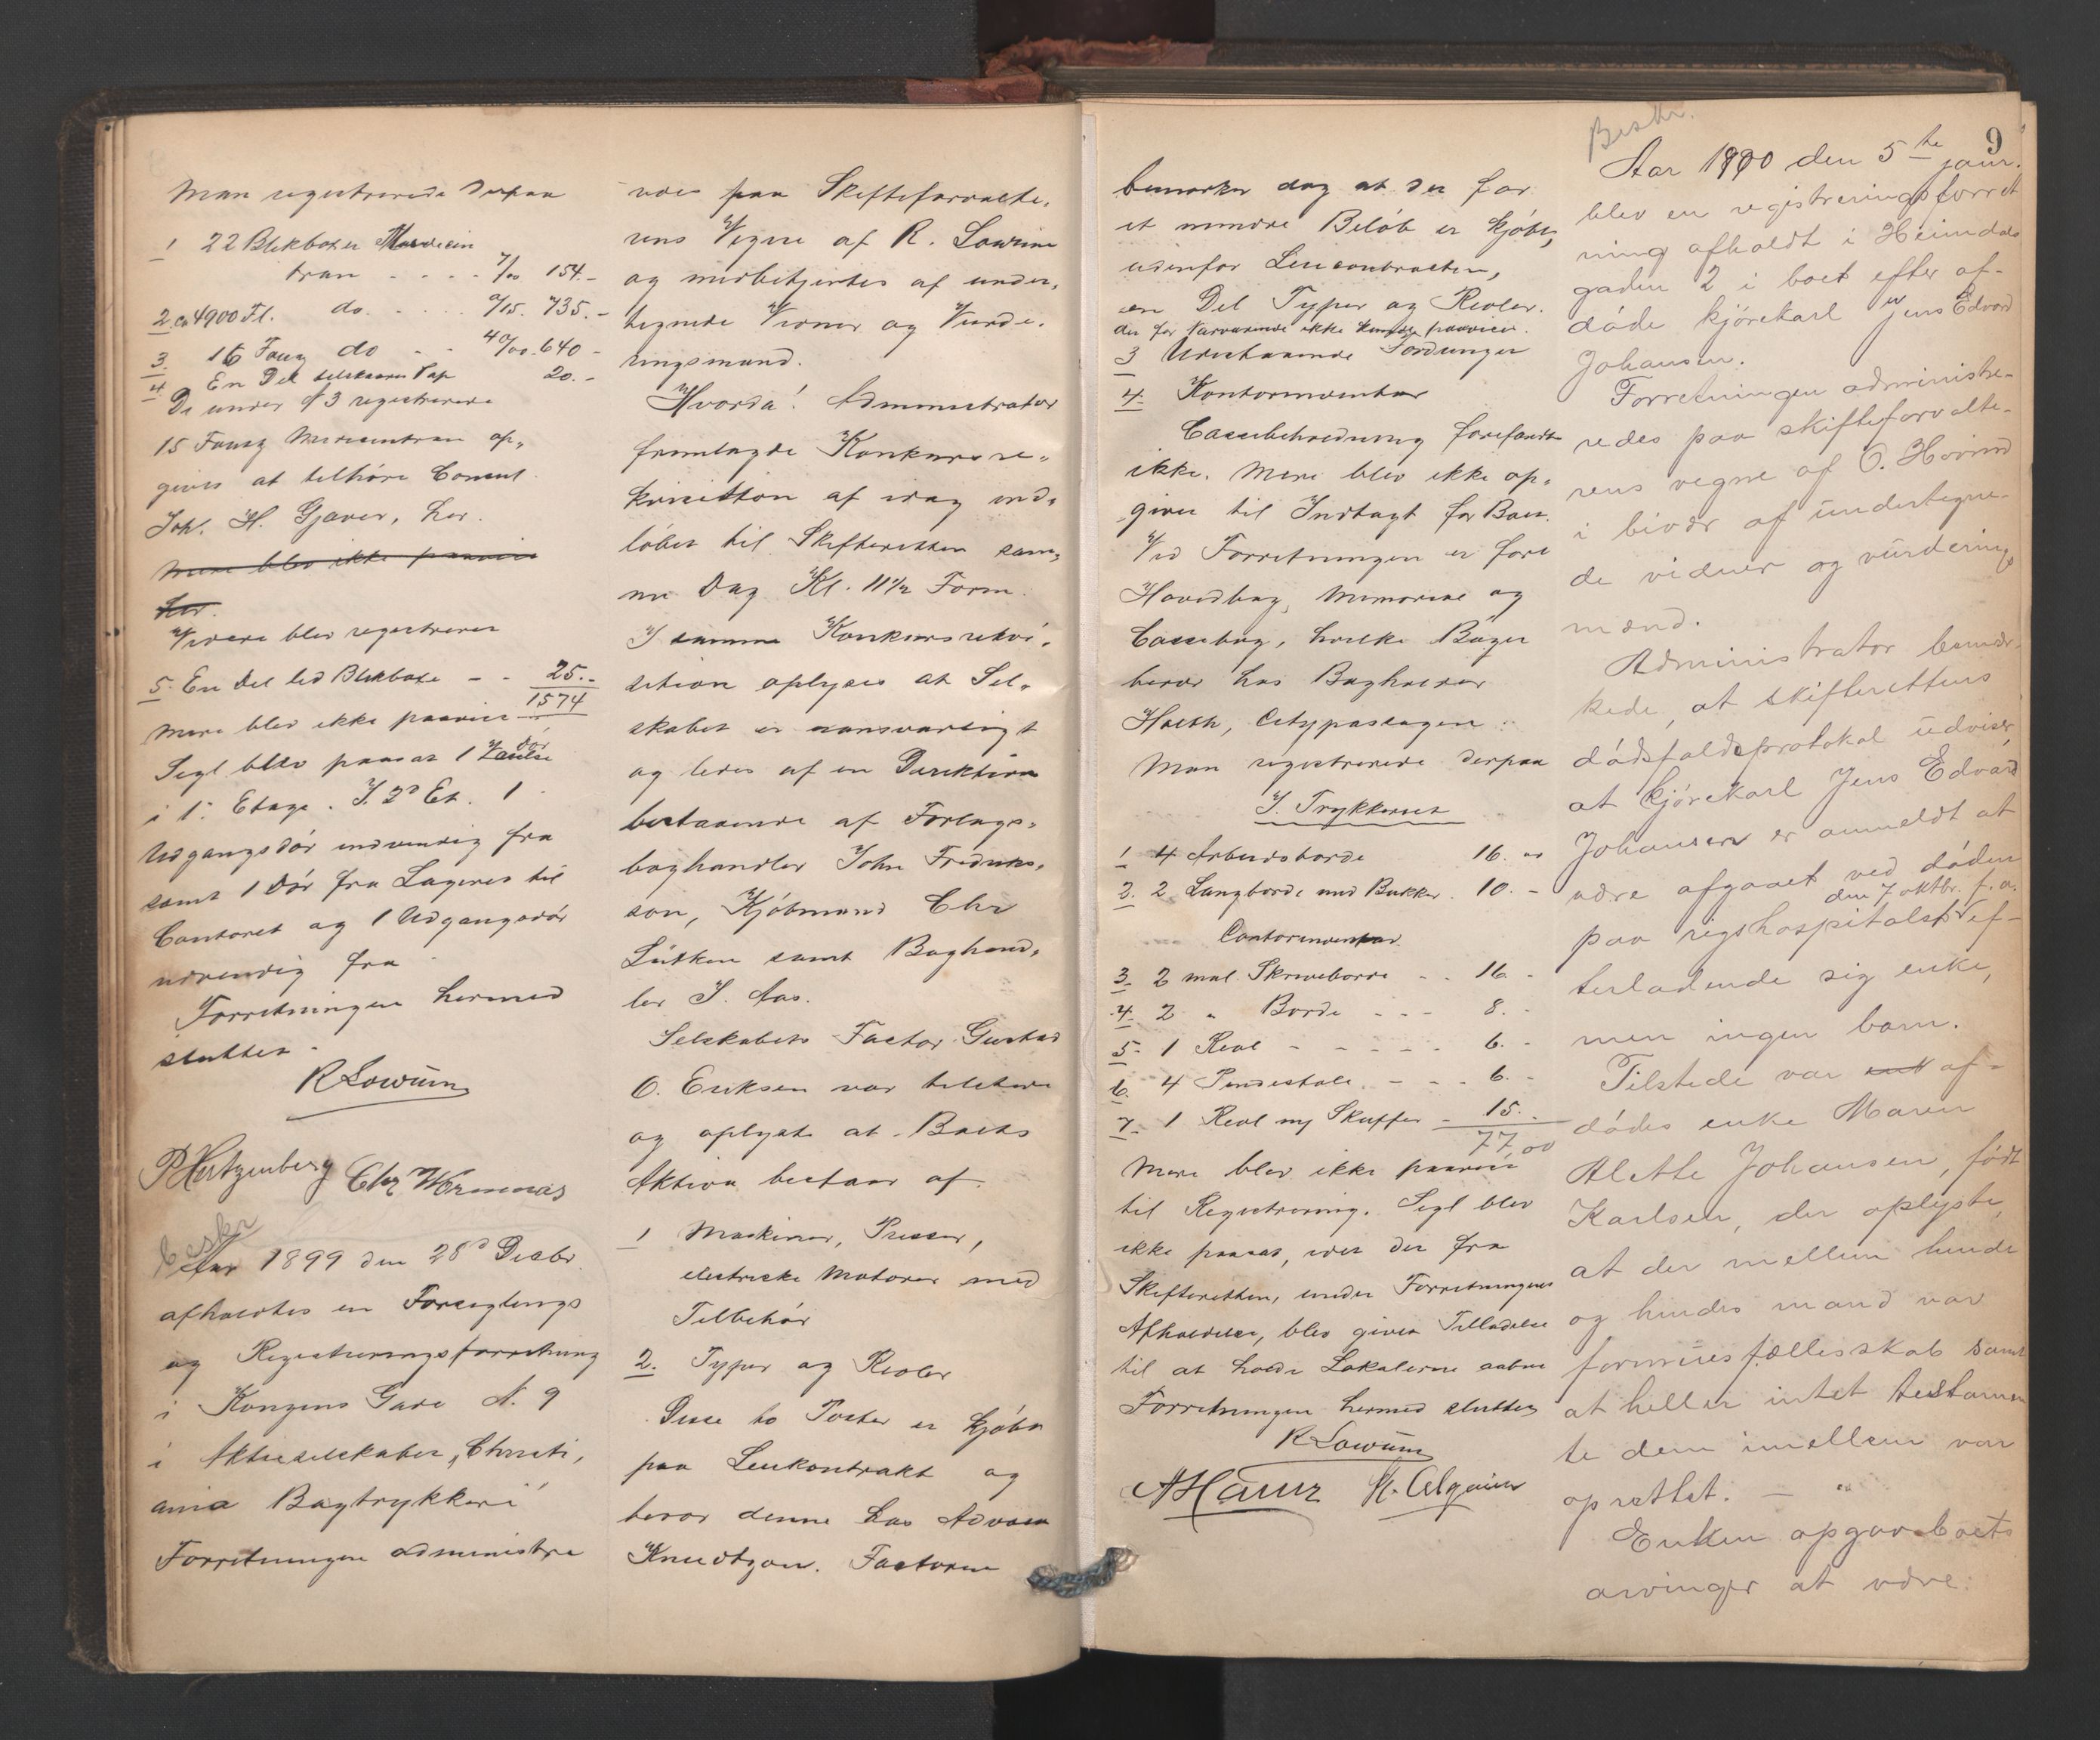 Man registrerede derpaa
1 22 Blikboxer Medicin
tran - - - - 7/00 154.-
2 ca 4900 Fl. do. - - - - 0/15. 735.-
3. 16 Fang do - - 40/00. 640-
4 En Del tilskaaren Pap 20.-
De under N 3 registrerede
15 Fang Medicintran op„
gives at tilhöre Consul
Joh. H. Gjæver, her.
Mere blev ikke paavist
her.
Videre blev registreret
5. En Del led Blikboxe - - 25.-
1574
Mere blev ikke paavist
Segl blev paasat 1 dör
i 1. Etage. I 2d Et. 1
Udgangsdör indvendig fra
samt 1 Dör fra Lageret til
Contoret og 1 Udgangsdör
udvendig fra
Forretningen hermed
sluttet.
R Lowum
P Hertzenberg Chr Wermenas
Beskr
Aar 1899 den 28d Decbr.
afholdtes en Forseglings
og Registreringsforretning
i Kongens Gade N. 9
i Aktieselskabet „Christi„
ania Bogtrykkeri"
Forretningen administre
redes paa Skifteforvalte„
rens Vegne af R. Lowum
og medbetjentes af under„
tegnede Vidner og Vurde„
ringsmænd.
Hvorda! Administrator
fremlagde Konkursre„
kvisition af idag ind„
löbet til Skifteretten sam„
me Dag Kl. 11 1/2 Form.
I samme Konkursrekvi„
sition oplyses at Sel„
skabet er uansvarligt
og ledes af en Direktion
bestaaende af Forlags„
boghandler John Fredriks„
son, Kjöbmand Chr
Lütken samt Boghand„
ler I. Aas.
Selskabets Factor Gustav
O. Eriksen var tilstede
og oplyste at Boets
Aktiva bestaar af
1 Maskiner, Presser,
electriske Motorer med
Tilbehör
2. Typer og Reoler
Disse to Poster er kjöbt
paa Leiekontrakt og
beror denne hos Advocat
Knudtzon. Factoren
9
Beskr.
bemærker dog at der for
et mindre Belöb er kjöbt,
udenfor Leiecontracten,
en Del Typer og Reoler.
der for Nærværende ikke kunde paavises.
3 Udestaaende Fordringer
4. Kontorinventar
Cassebeholdning forefandtes
ikke. Mere blev ikke op„
givet til Indtægt for Boet.
Ved Forretningen er fore
Hovedbog, Memorial og
Cassebog, hvilke Böger
beror hos Bogholder
Holth, Citypassagen.
Man registrerede derpaa
I Trykkeriet
1 4 Arbeidsborde 16. 00
2. 2 Langborde med Bukker. 10. -
Contorinventar.
3. 2 mal. Skriveborde - - 16. -
4. 2 " Borde - - - 8. -
5. 1 Reol - - - - - 6. -
6. 4 Pindestole - - - 6. -
7. 1 Reol m/ Skuffer - 15. -
77.00
Mere blev ikke paavist
til Registrering. Segl blev
ikke paasat, idet der fra
Skifteretten, under Forretningens
Afholdelse, blev given Tilladelse
til at holde Lokalerne aabne
Forretningen hermed sluttet
R Lowum
A Hauer
Aar 1900 den 5te janr.
blev en registreringsforret
ning afholdt i Heimdals
gaden 2 i boet efter af-
döde kjörekarl Jens Edvard
Johansen.
Forretningen administre-
redes paa skifteforvalte-
rens vegne af O. Hovind
i bivær af undertegne-
de vidner og vurderings
mænd.
Administrator bemær-
kede, at skifterettens
dödsfaldsprotokol udviser,
at kjörekarl Jens Edvard
Johansen er anmeldt at
være afgaaet ved döden
den 7 oktbr. f. a.
paa rigshospitalet ef-
terladende sig enke,
men ingen barn.
Tilstede var enk af-
dödes enke Maren
Alette Johansen, født
Karlsen, der oplyste,
at der mellem hende
og hendes mand var
formuesfællesskab samt
at heller intet testamen
te dem imellem var
oprettet. -
Enken opgav boets
arvinger at være: